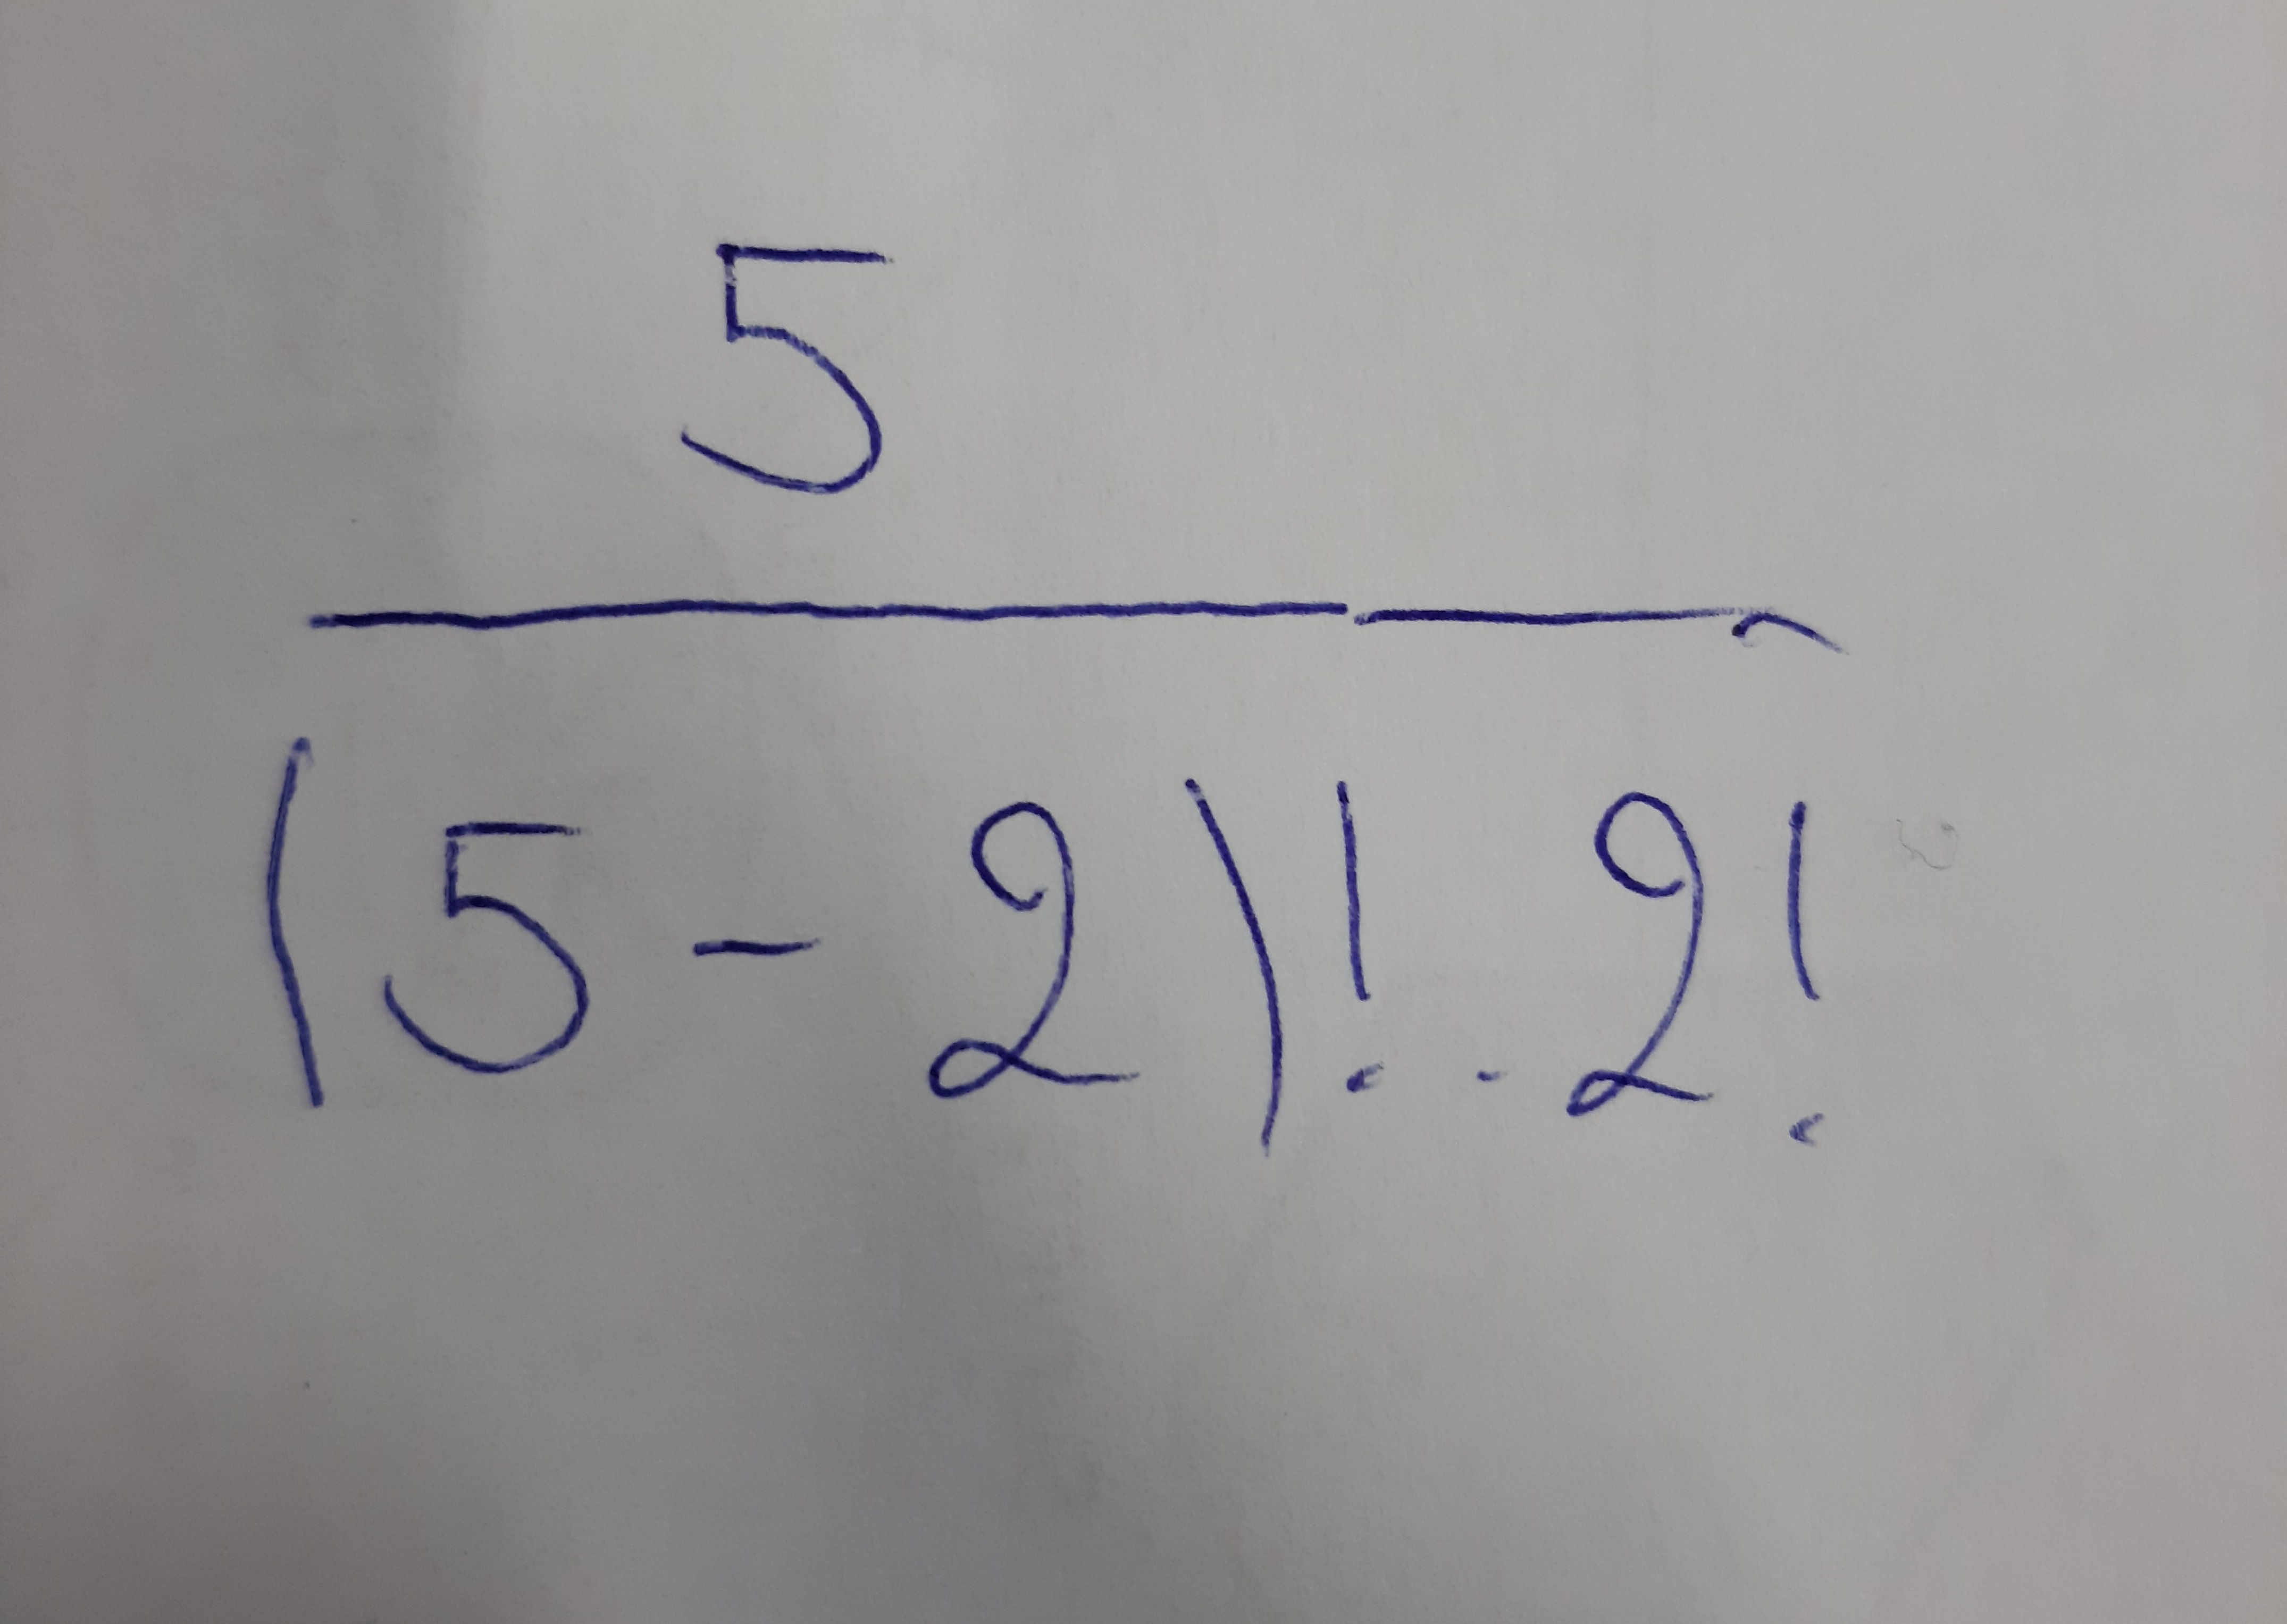 5
(5 - 2)! . 2!